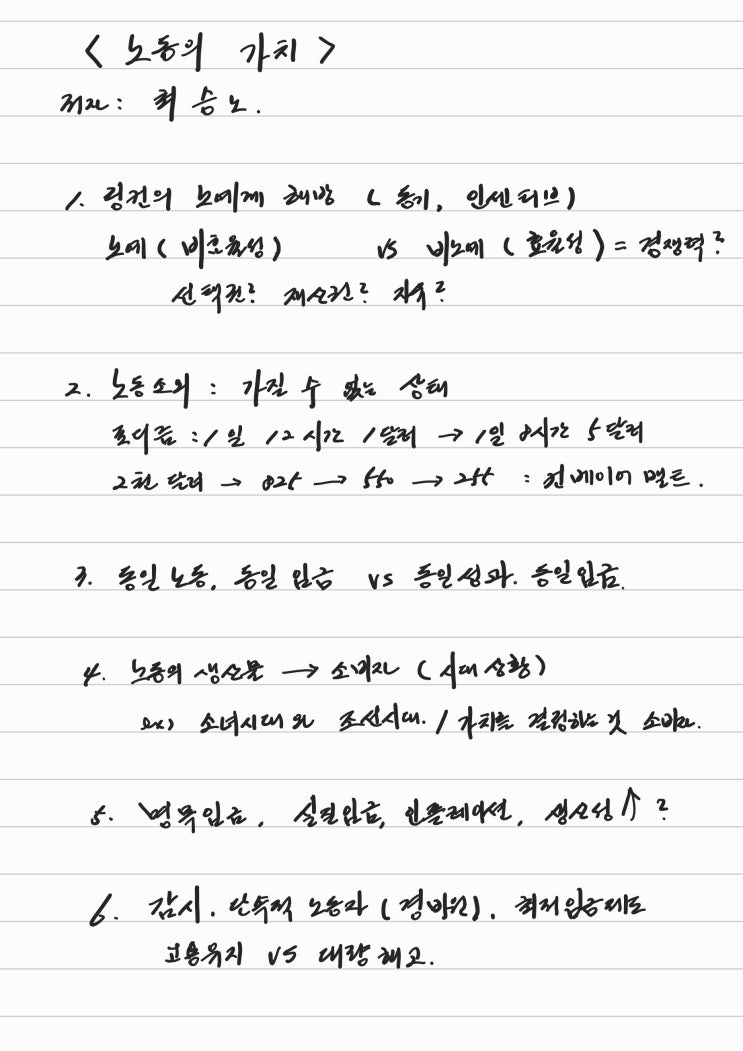 < 노동의 가치 >
저자 : 최승노.
1. 링컨의 노예제 해방 ( 동기, 인센티브 )
노예 ( 비효율성 ) vs 비노예 ( 효율성 ) = 경쟁력?
선택권? 재산권? 자유?
2. 노동소외 : 가질 수 없는 상태
포디즘 : 1일 12시간 1달러 → 1일 8시간 5달러
2천 달러 → 825 → 550 → 255 : 컨베이어 벨트.
3. 동일 노동, 동일 임금 vs 동일 성과. 동일 임금.
4. 노동의 생산물 → 소비자 ( 시대 상황 )
ex) 소녀시대 와 조선시대. / 가치를 결정하는 것 소비자.
5. 명목임금, 실질임금, 인플레이션, 생산성↑ ?
6. 감시. 단속적 노동자 ( 경비원 ). 최저임금제도
고용유지 VS 대량 해고.